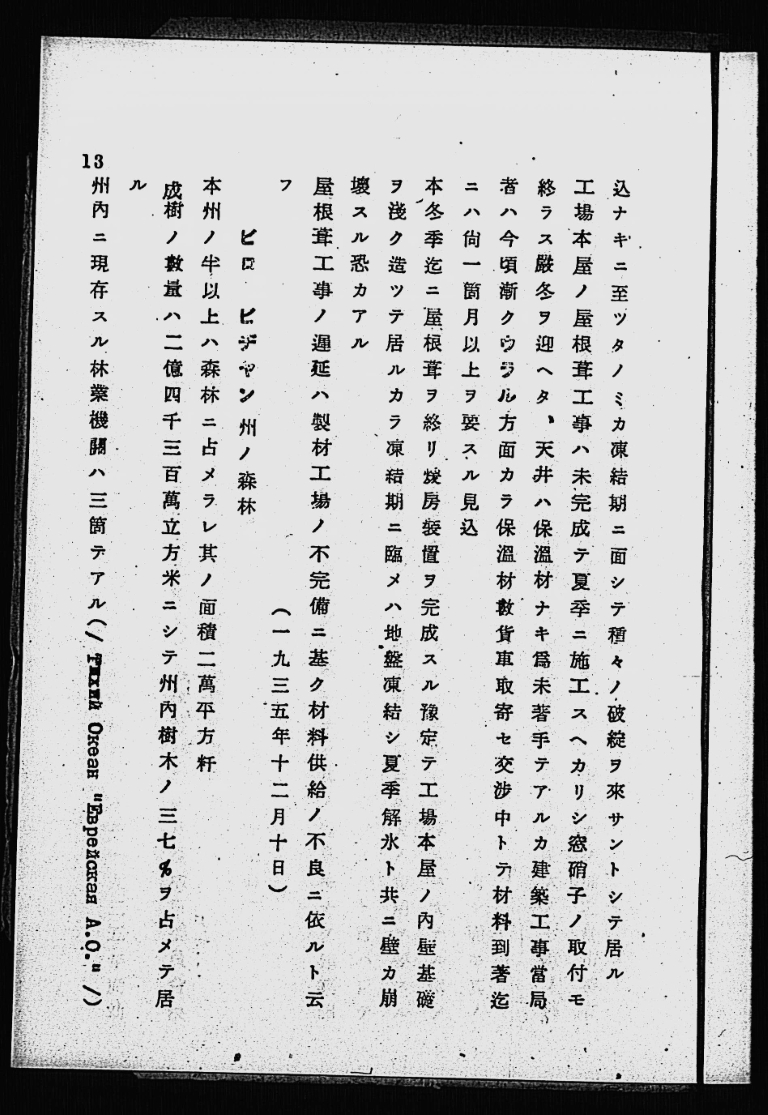 込ナキニ至ツタノミカ凍結期ニ面シテ種々ノ破綻ヲ來サントシテ居ル
工場本屋ノ屋根葺工事ハ未完成テ夏季ニ施工スヘカリシ窓硝子ノ取付モ
終ラス嚴冬ヲ迎ヘタ、天井ハ保溫材ナキ爲未著手テアルカ建築工事當局
者ハ今頃漸クウラル方面カラ保溫材數貨車取寄セ交涉中トテ材料到著迄
ニハ尙一箇月以上ヲ要スル見込
本冬季迄ニ屋根葺ヲ終リ煖房裝置ヲ完成スル豫定テ工場本屋ノ內壁基礎
ヲ淺ク造ツテ居ルカラ凍結期ニ臨メハ地盤凍結シ夏季解氷ト共ニ壁カ崩
壞スル恐カアル
屋根葺工事ノ遲延ハ製材工場ノ不完備ニ基ク材料供給ノ不良ニ依ルト云
フ
(一九三五年十二月十日)
ビロビヂヤン州ノ森林
本州ノ半以上ハ森林ニ占メラレ其ノ面積二萬平方粁
成樹ノ數量ハ二億四千三百萬立方米ニシテ州內樹木ノ三七%ヲ占メテ居
ル
州內ニ現存スル林業機關ハ三箇テアル(/Тихий Океан "Еврейская А.О."/)
13